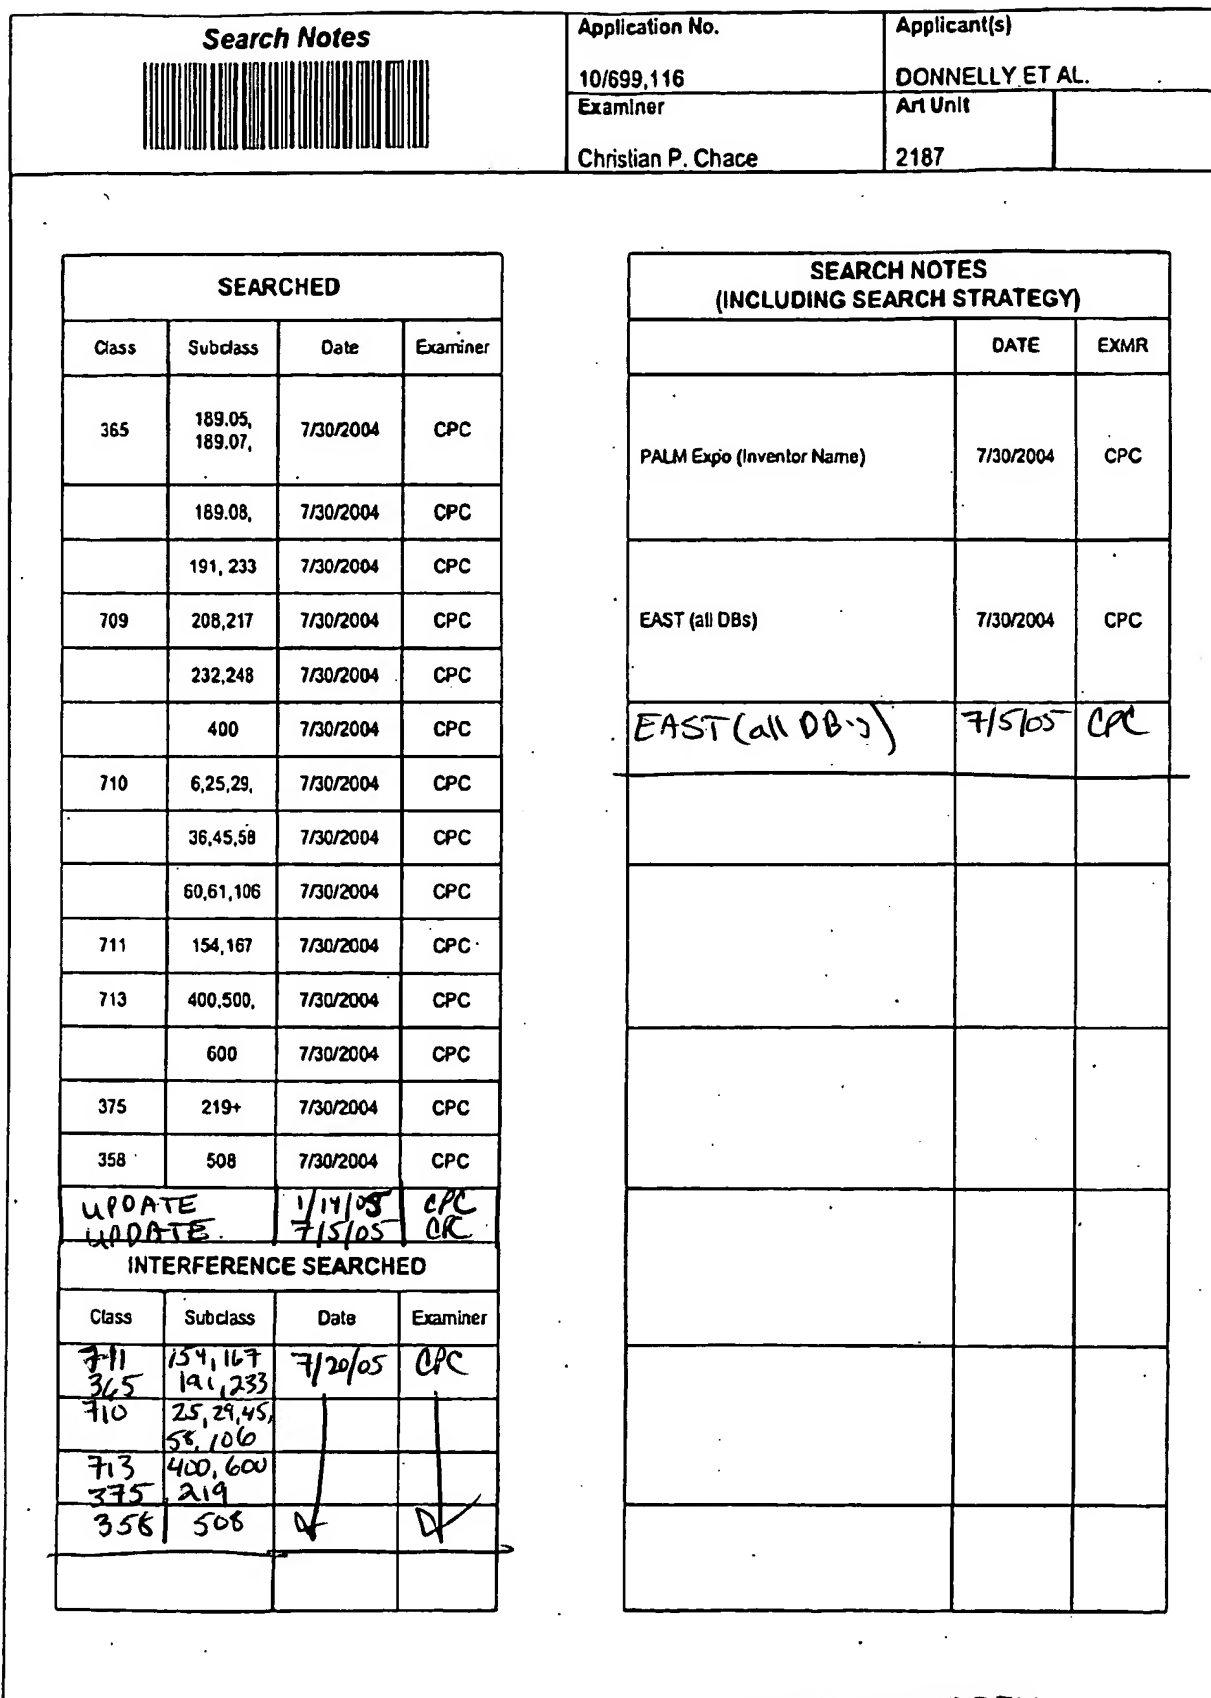 Search Notes
Application No.
10/699,116
Applicant(s)
DONNELLY ET AL.
Examiner
Christian P. Chace
Art Unit
2187
SEARCHED
Class Subclass Date Examiner
365 189.05, 189.07, 7/30/2004 CPC
189.08, 7/30/2004 CPC
191, 233 7/30/2004 CPC
709 208,217 7/30/2004 CPC
232,248 7/30/2004 CPC
400 7/30/2004 CPC
710 6,25,29, 7/30/2004 CPC
36,45,58 7/30/2004 CPC
60,61,106 7/30/2004 CPC
711 154,167 7/30/2004 CPC
713 400,500, 7/30/2004 CPC
600 7/30/2004 CPC
375 219+ 7/30/2004 CPC
358 508 7/30/2004 CPC
UPDATE 1/14/05 CPC
UPDATE 7/5/05 CPC
INTERFERENCE SEARCHED
Class Subclass Date Examiner
711 154, 167 7/20/05 CPC
365 191, 233
710 25, 29, 45,
58, 106
713 400, 600
375 219
358 508
SEARCH NOTES
(INCLUDING SEARCH STRATEGY)
DATE EXMR
PALM Expo (Inventor Name) 7/30/2004 CPC
EAST (all DBs) 7/30/2004 CPC
EAST (all DB's) 7/5/05 CPC